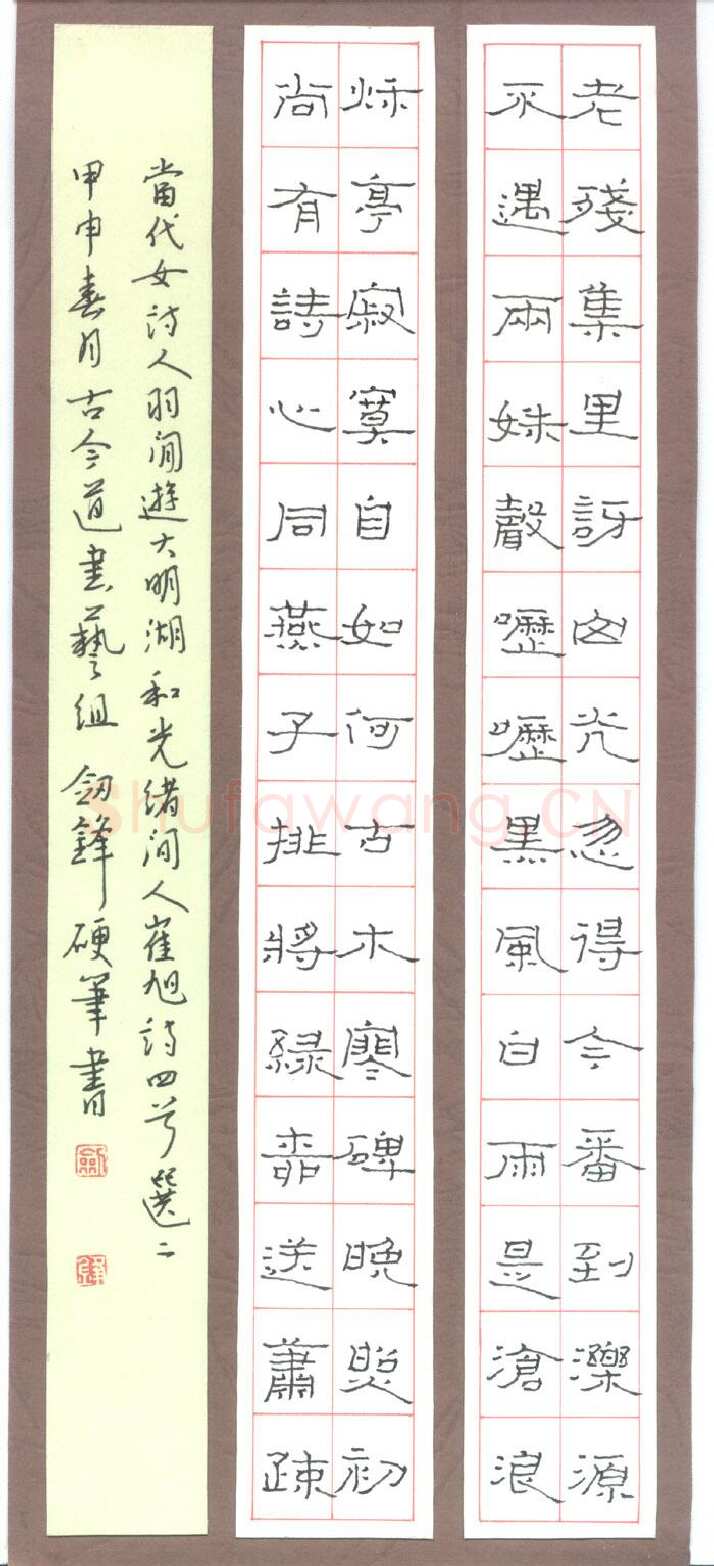 老殘集里訝幽光忽得今番到濼源
不遇兩姝聲嚦嚦黑風白雨是滄浪
秌亭寂寞自如何古木寒碑晚照初
尚有詩心同燕子排將綠柳送蕭疎
當代女詩人羽閒遊大明湖和光緒間人崔旭詩四首選二
甲申春月古今道書藝組 劍鋒硬筆書
劍
鋒
Shufawang.CN